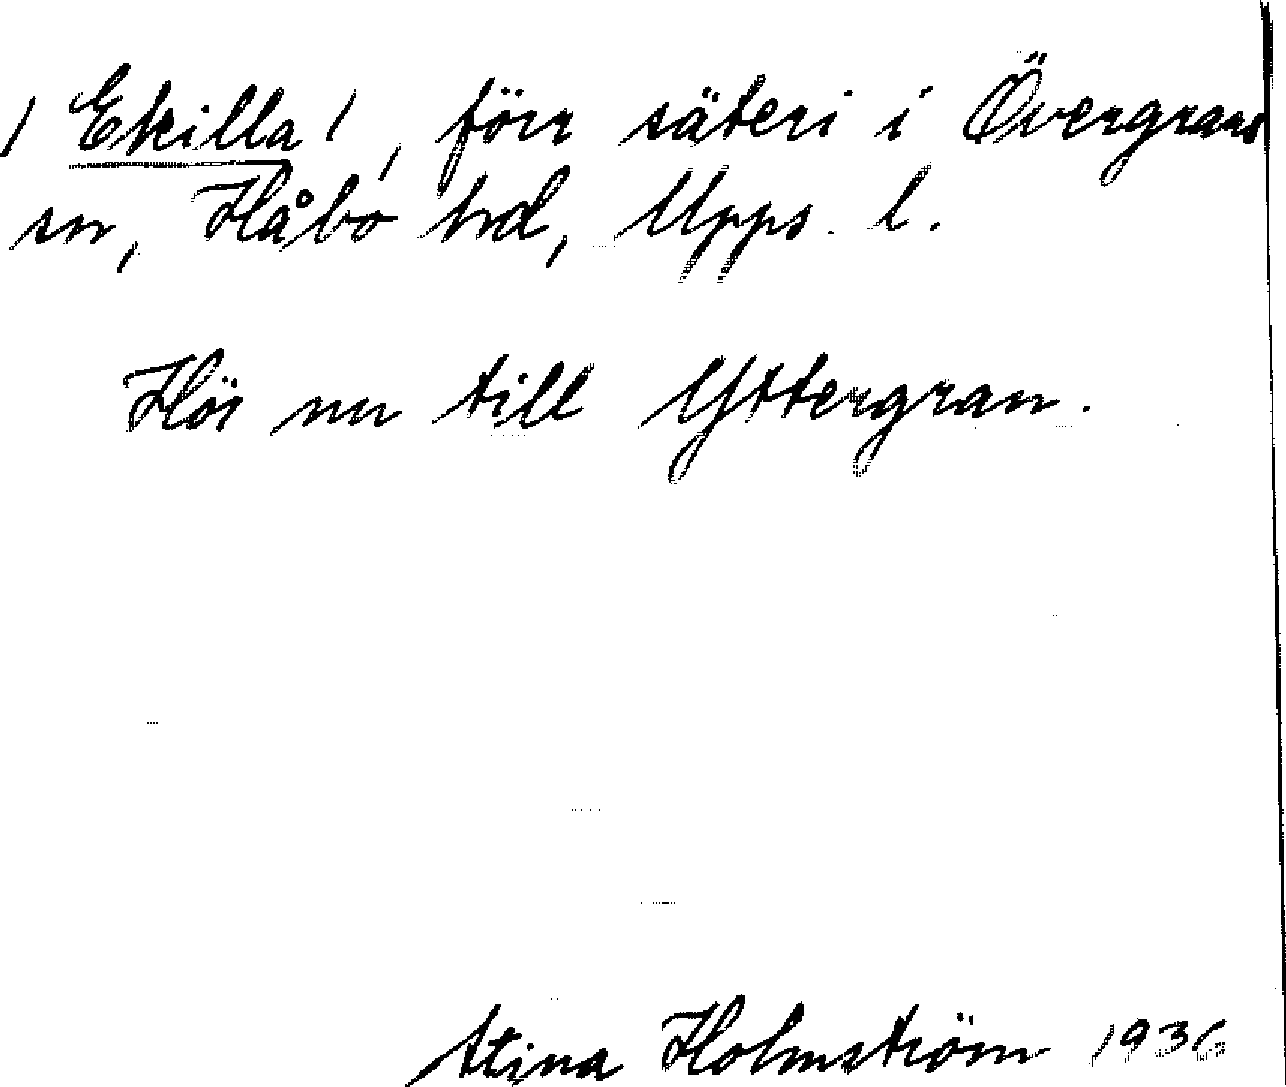 / Ekilla /, förr säteri i Övergrans
sn, Håbo hd, Upps. l.
Hör nu till Yttergran.
Stina Holmström 1936